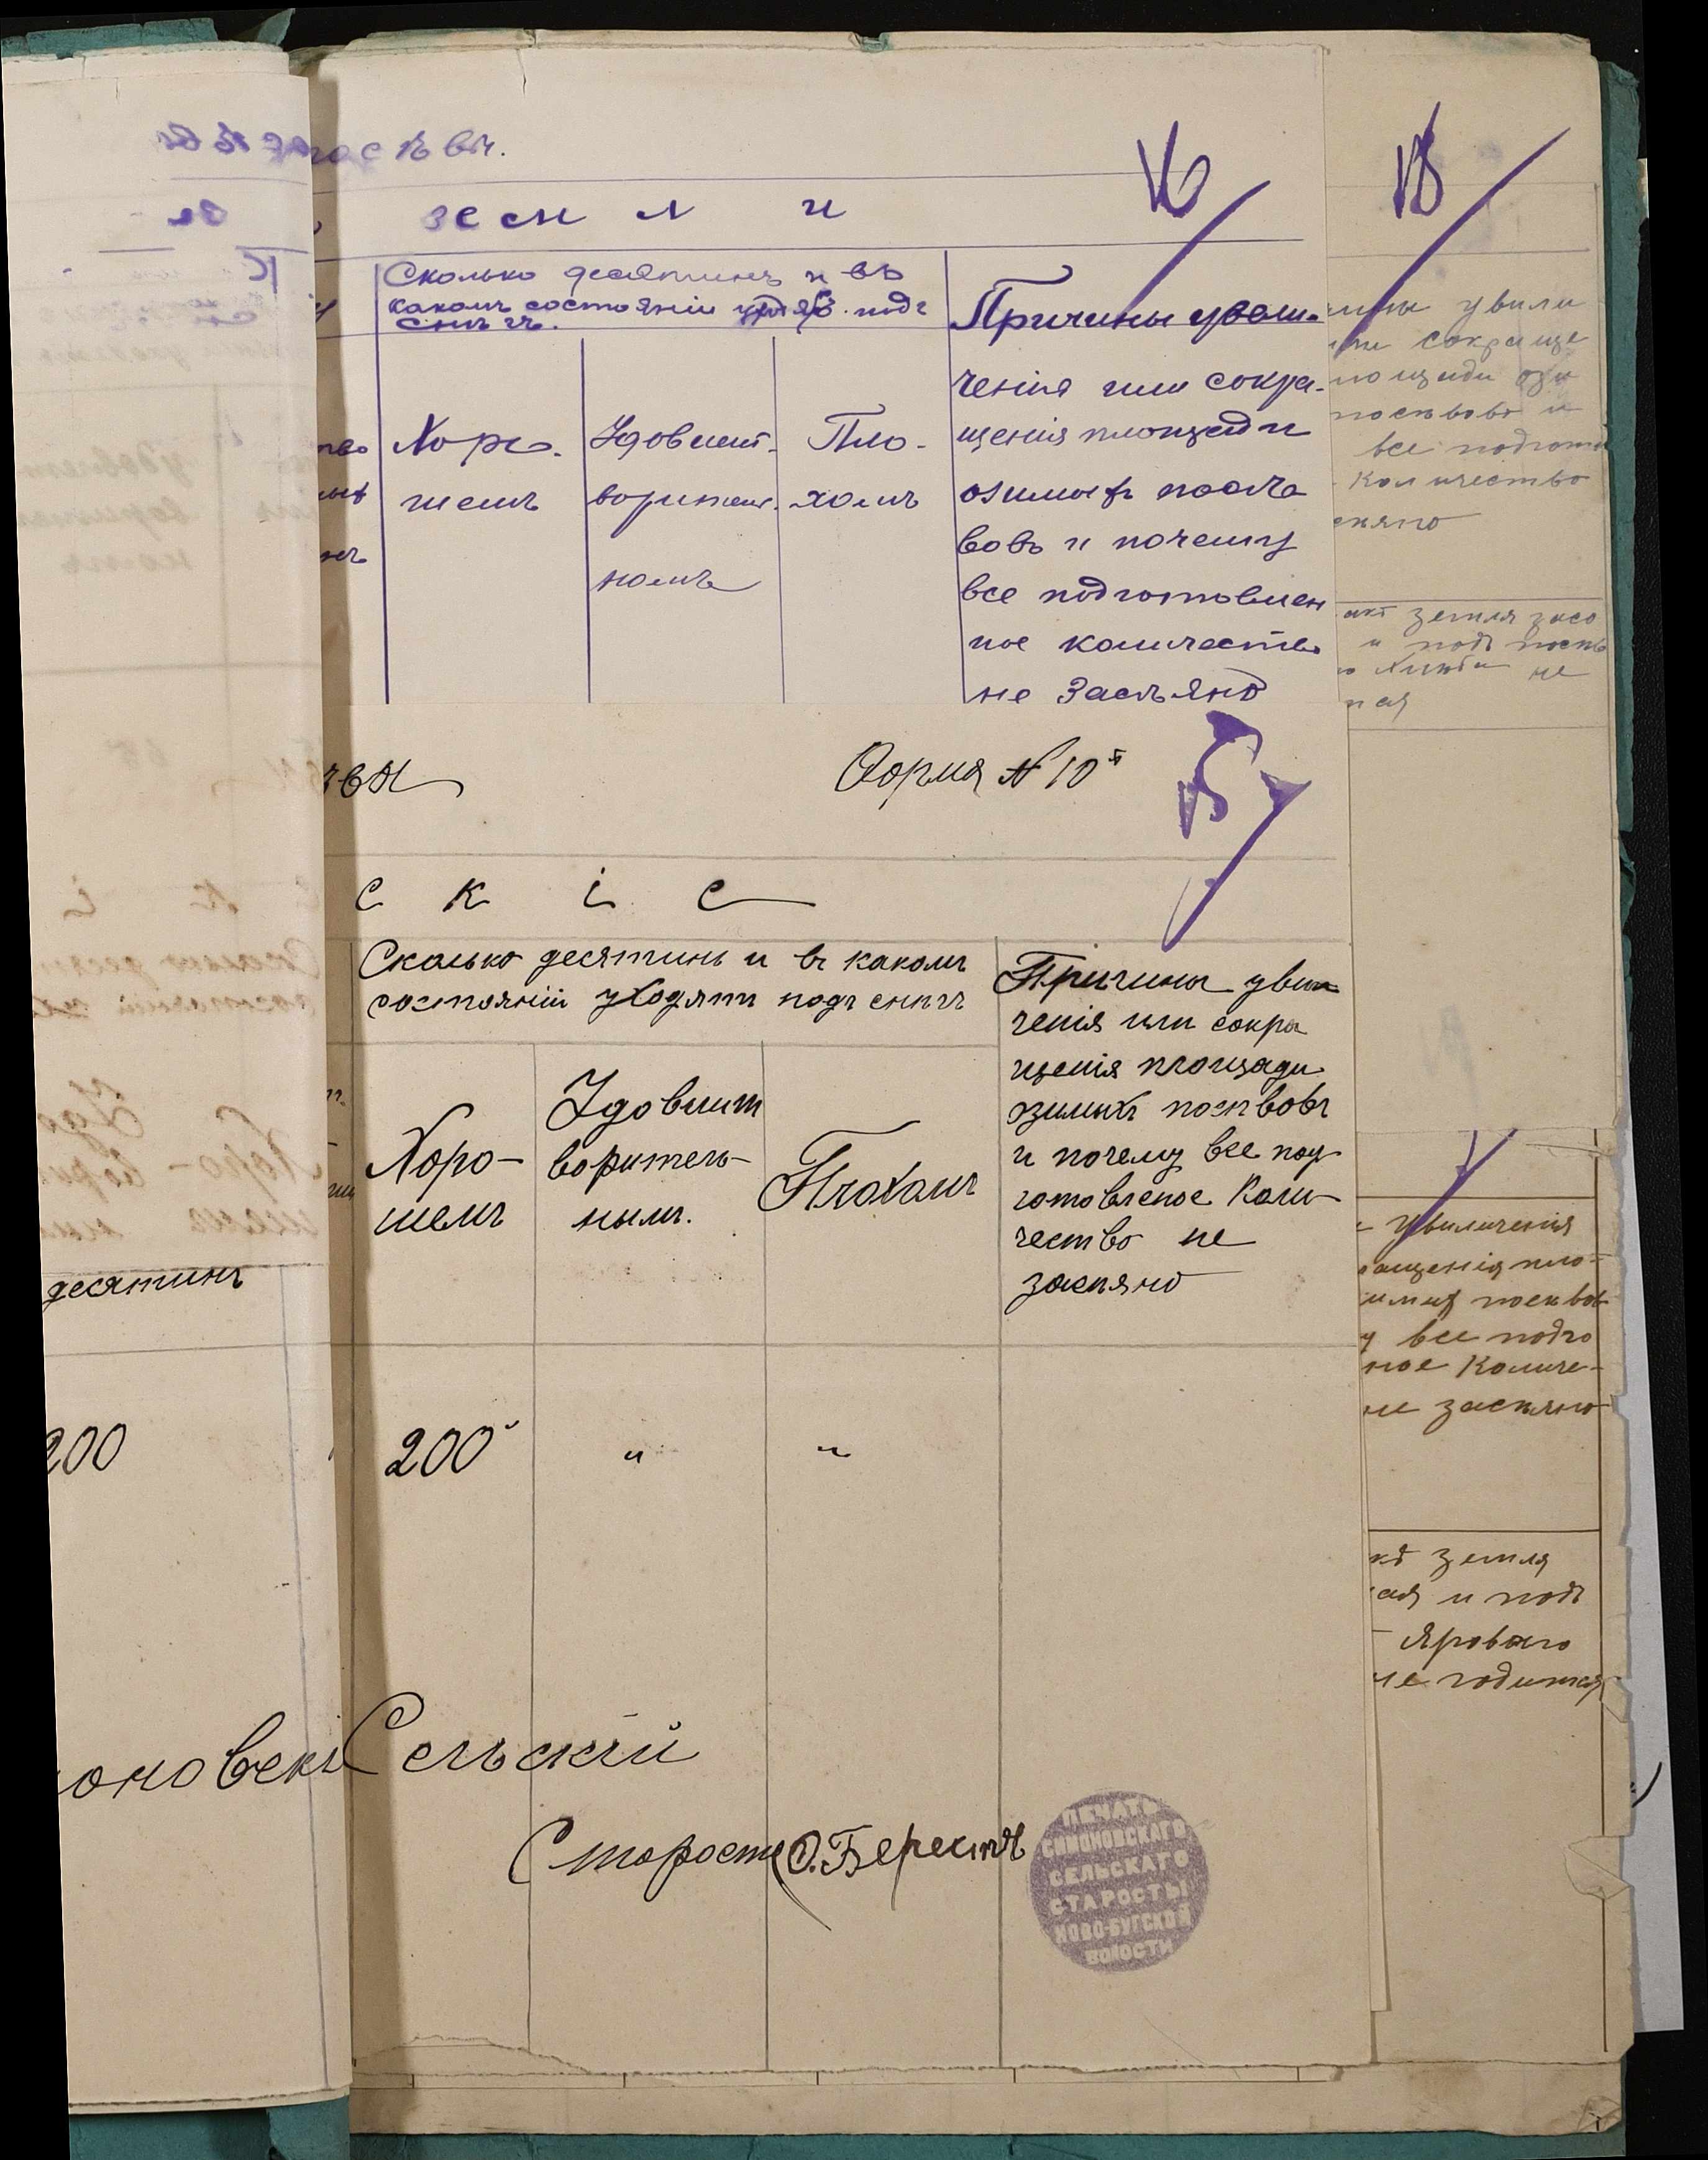 посѣвы.
16
18
земли
Сколько десятинъ и въ
какомъ состояніи уход. подъ
снѣгъ.
Хоро-
шемъ
Удовлет-
воритель-
номъ
Пло-
хомъ
Причины увели-
ченія или сокра-
щенія площади
озимыхъ посѣ
вовъ и почему
все подготовлен
ное количество
не засѣяно
увили
сокраще
площади ози
посѣвовъ и
все подгото
количество
сѣяно
земля засо
и подъ посѣв
не
чвы
Форма № 10й
15
с к і е
Сколько десятинъ и въ какомъ
состояніи уходятъ подъ снѣгъ
Хоро-
шемъ
Удовлит
воритель-
нымъ.
Плохомъ
Причины увили
ченія или сокра
щенія площади
озимыхъ посѣвовъ
и почему все под
готовленое коли-
чество не
засѣяно
десятинъ
200
200
"
"
увиличенія
ращенія пло-
имых посѣвов
у все подго
ное количе-
не засѣяно
земля
ая и подъ
яроваго
не годится
оновскій Сельскій
Староста О. Берестъ
ПЕЧАТЬ
СИМОНОВСКАГО
СЕЛЬСКАГО
СТАРОСТЫ
НОВО-БУГСКОЙ
ВОЛОСТИ